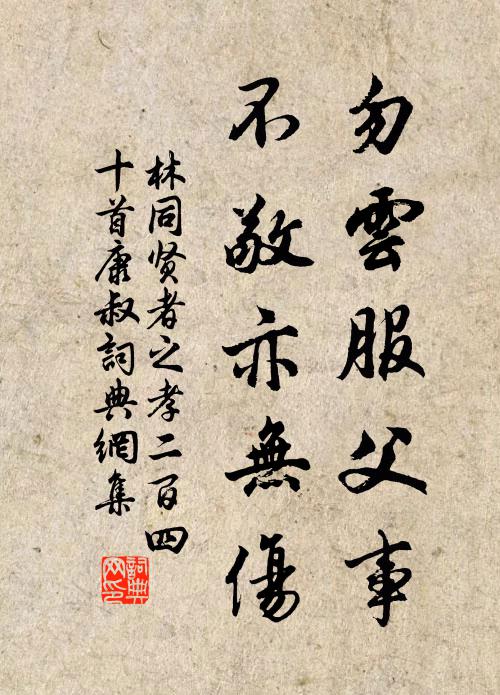 勿雲服父事
不敬亦無傷
林同贤者之孝二百四
十首康叔詞典網集
詞典网印